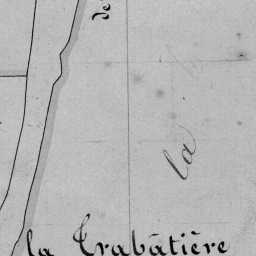 de
la
la Trabatière